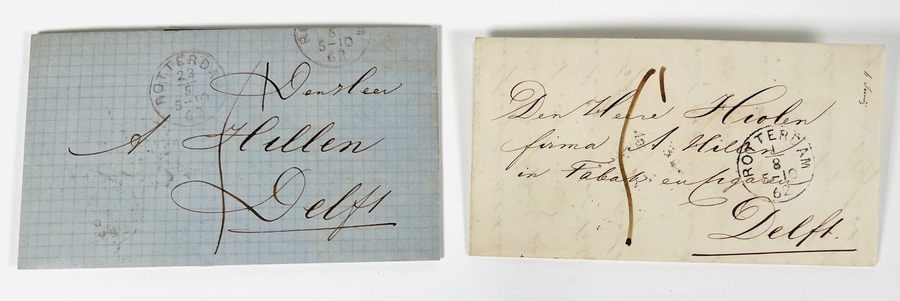 ROTTERDAM
23
5
5-10
5-10
Den Heer
A. Hillen
Delft
Den Heere Hiolen
firma A Hillen
in Tabak en Sigaren
Delft.
ROTTERDAM
8
5-10
62